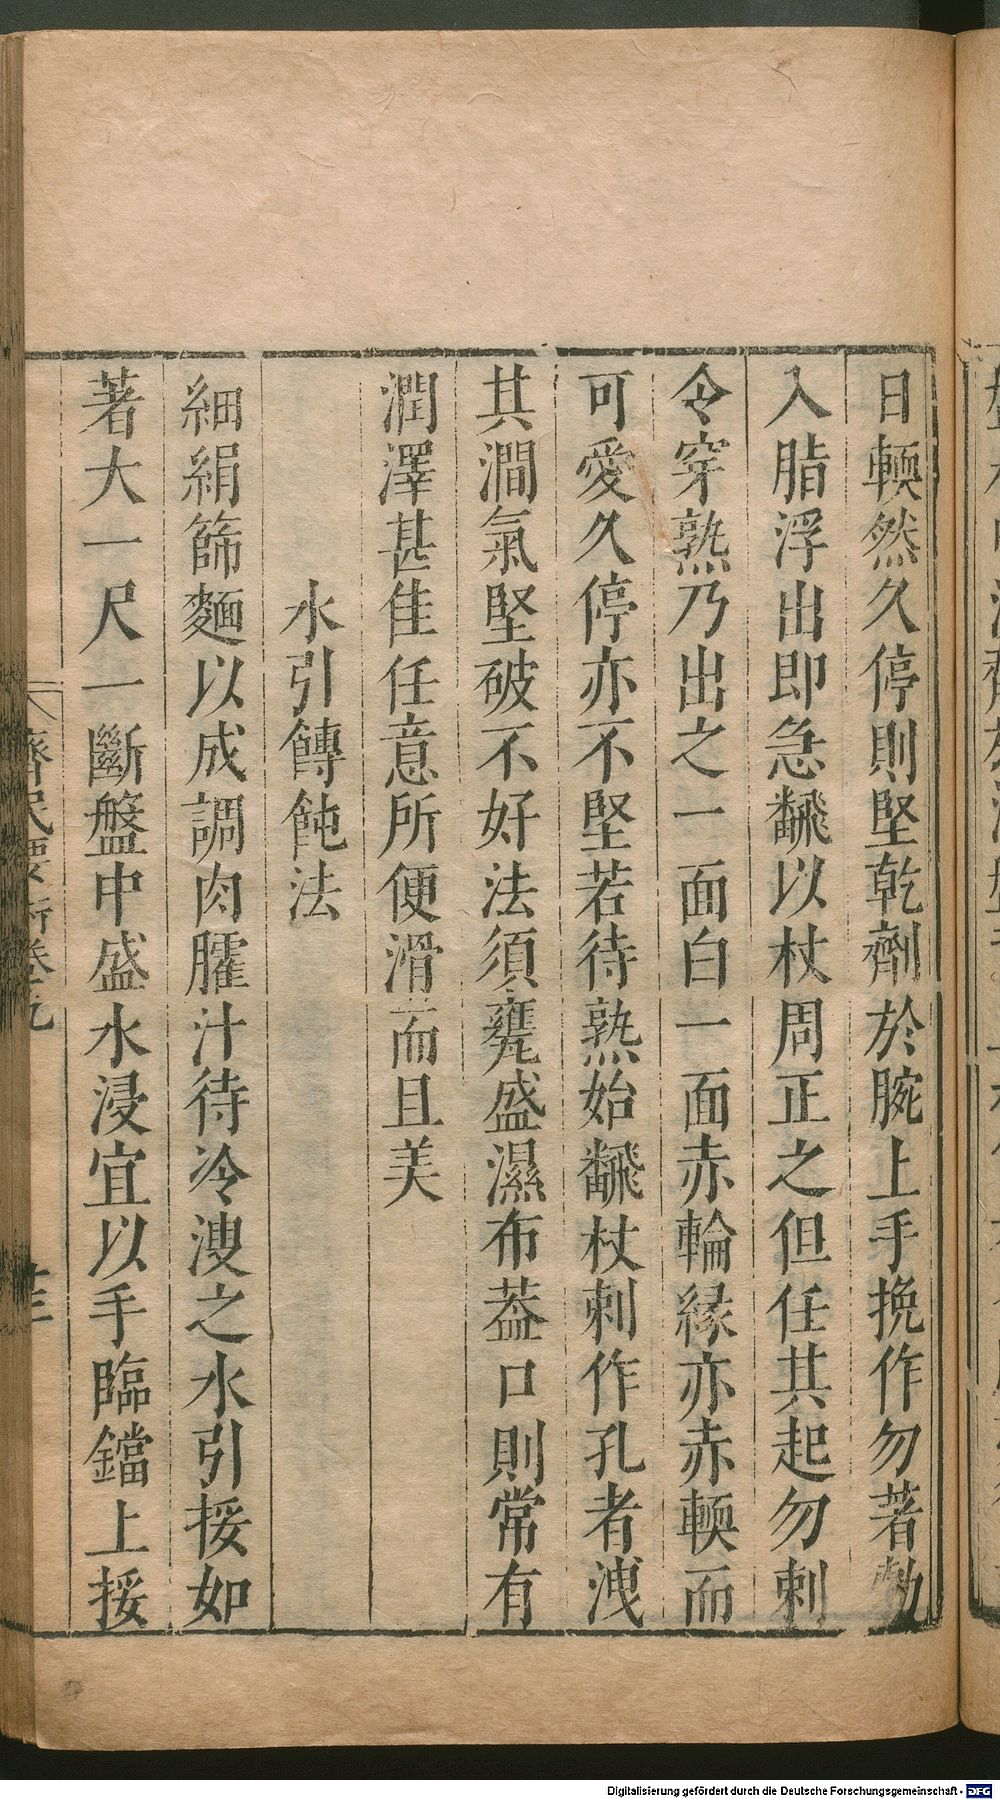 日輭然久停則堅乾劑於腕上手挽作勿著勃
入脂浮出即急飜以杖周正之但任其起勿刺
令穿熟乃出之一面白一面赤輪緣亦赤輭而
可愛久停亦不堅若待熟始飜杖刺作孔者洩
其澗氣堅破不好法須甕盛濕布蓋口則常有
潤澤甚佳任意所便滑而且美
水引餺飥法
細絹篩麵以成調肉臛汁待冷溲之水引挼如
著大一尺一斷盤中盛水浸宜以手臨鐺上挼
齊民要術卷九
Digitalisierung gefördert durch die Deutsche Forschungsgemeinschaft - DFG